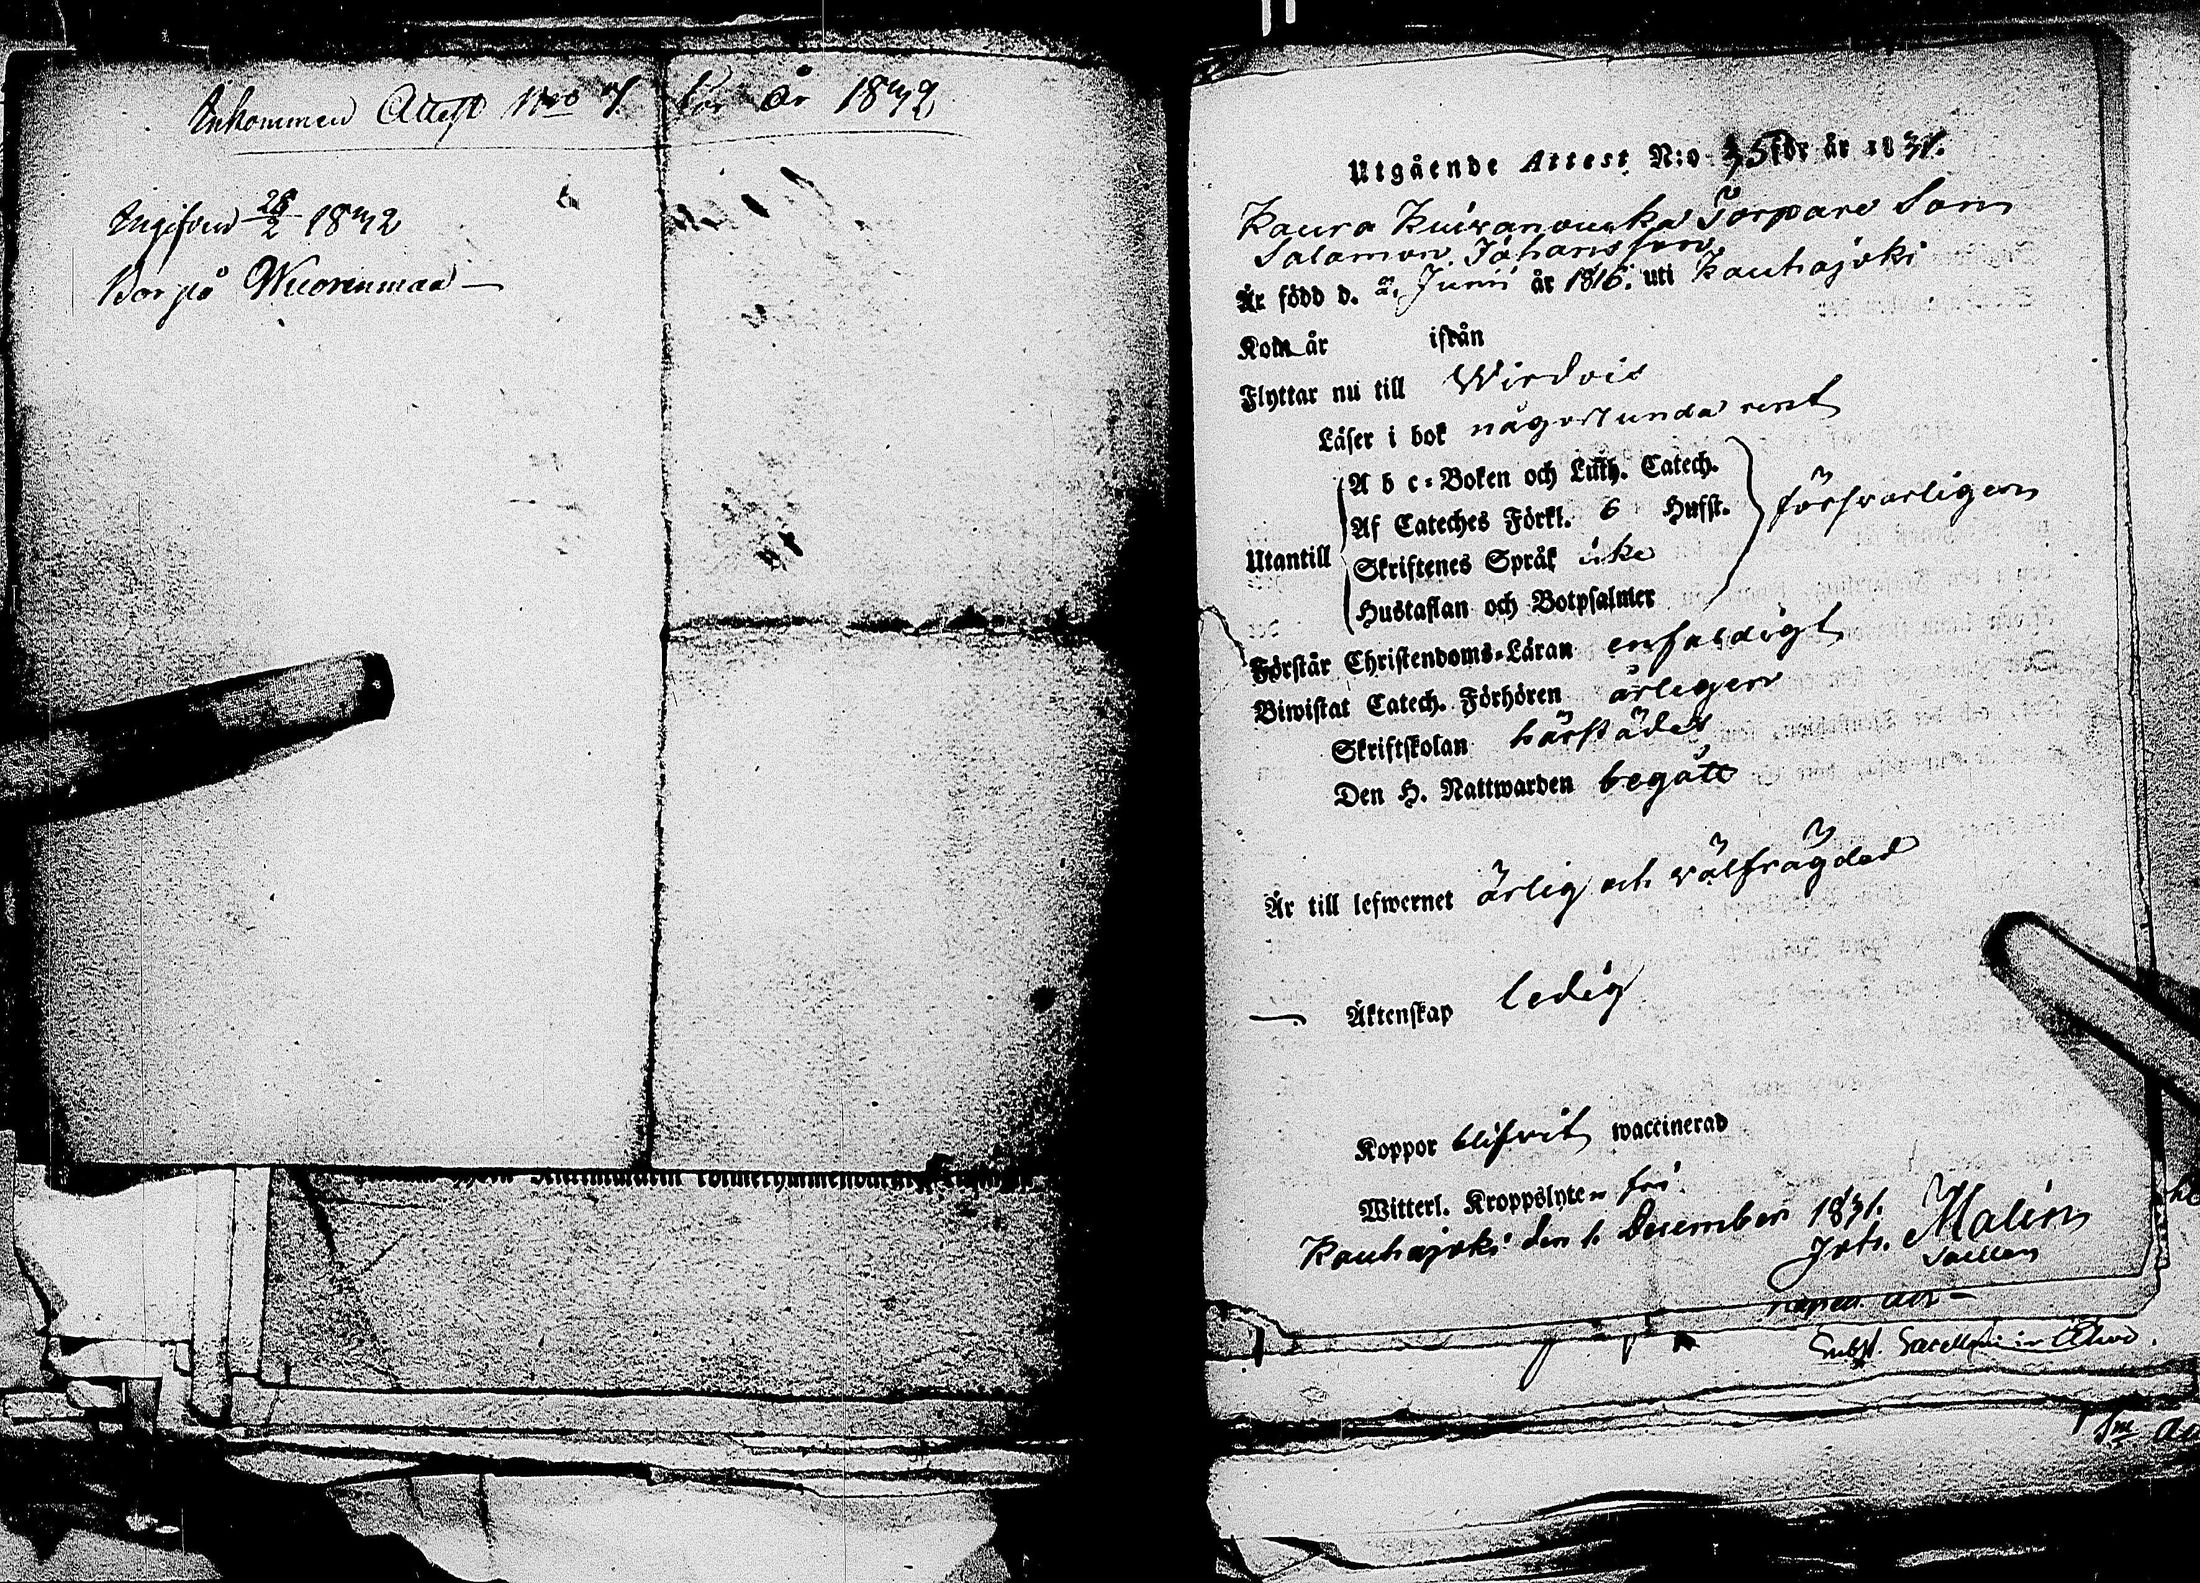 Inkommen Attest Nro 7. för år 1832
Ingifven 28/2 1832
Bor på Wuorenmaa —
Utgående Attest N:o 35 för år 1831.
Torpare Son
Salamon Johansson
Är född d. 2. Junii år 1816. uti Kauhajoki
Kom år ifrån
Flyttar nu till Wirdois
Läser i bok någorlunda rent
A b c-Boken och Luth. Catech.
Af Cateches Förkl. 6 Hufst. försvarligen
Utantill
Skriftenes Språk icke
Hustaflan och Botpsalmer
Förstår Christendoms-Läran enfaldigt
Biwistat Catech. Förhören årligen
Skriftskolan härstädes
Den H. Nattwarden begått
Är till lefwernet ärlig och välfrägdad
— Äktenskap ledig
Koppor blifvit waccinerad
Witterl. Kroppslyten fri.
Kauhajoki den 1. December 1831.
Joh. Malin
Sacellan